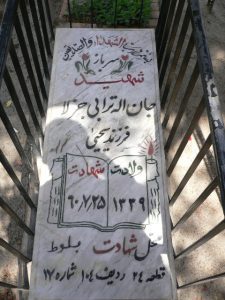 سرباز
شهید
جان اله ترابی جر لا
فرزند یحیی
ولادت شهادت
۱۳۳۹ ۶۰،۷،۲۵
محل شهادت بلوط
قطعه ۲۴ ردیف ۱۰۴ شماره ۱۷